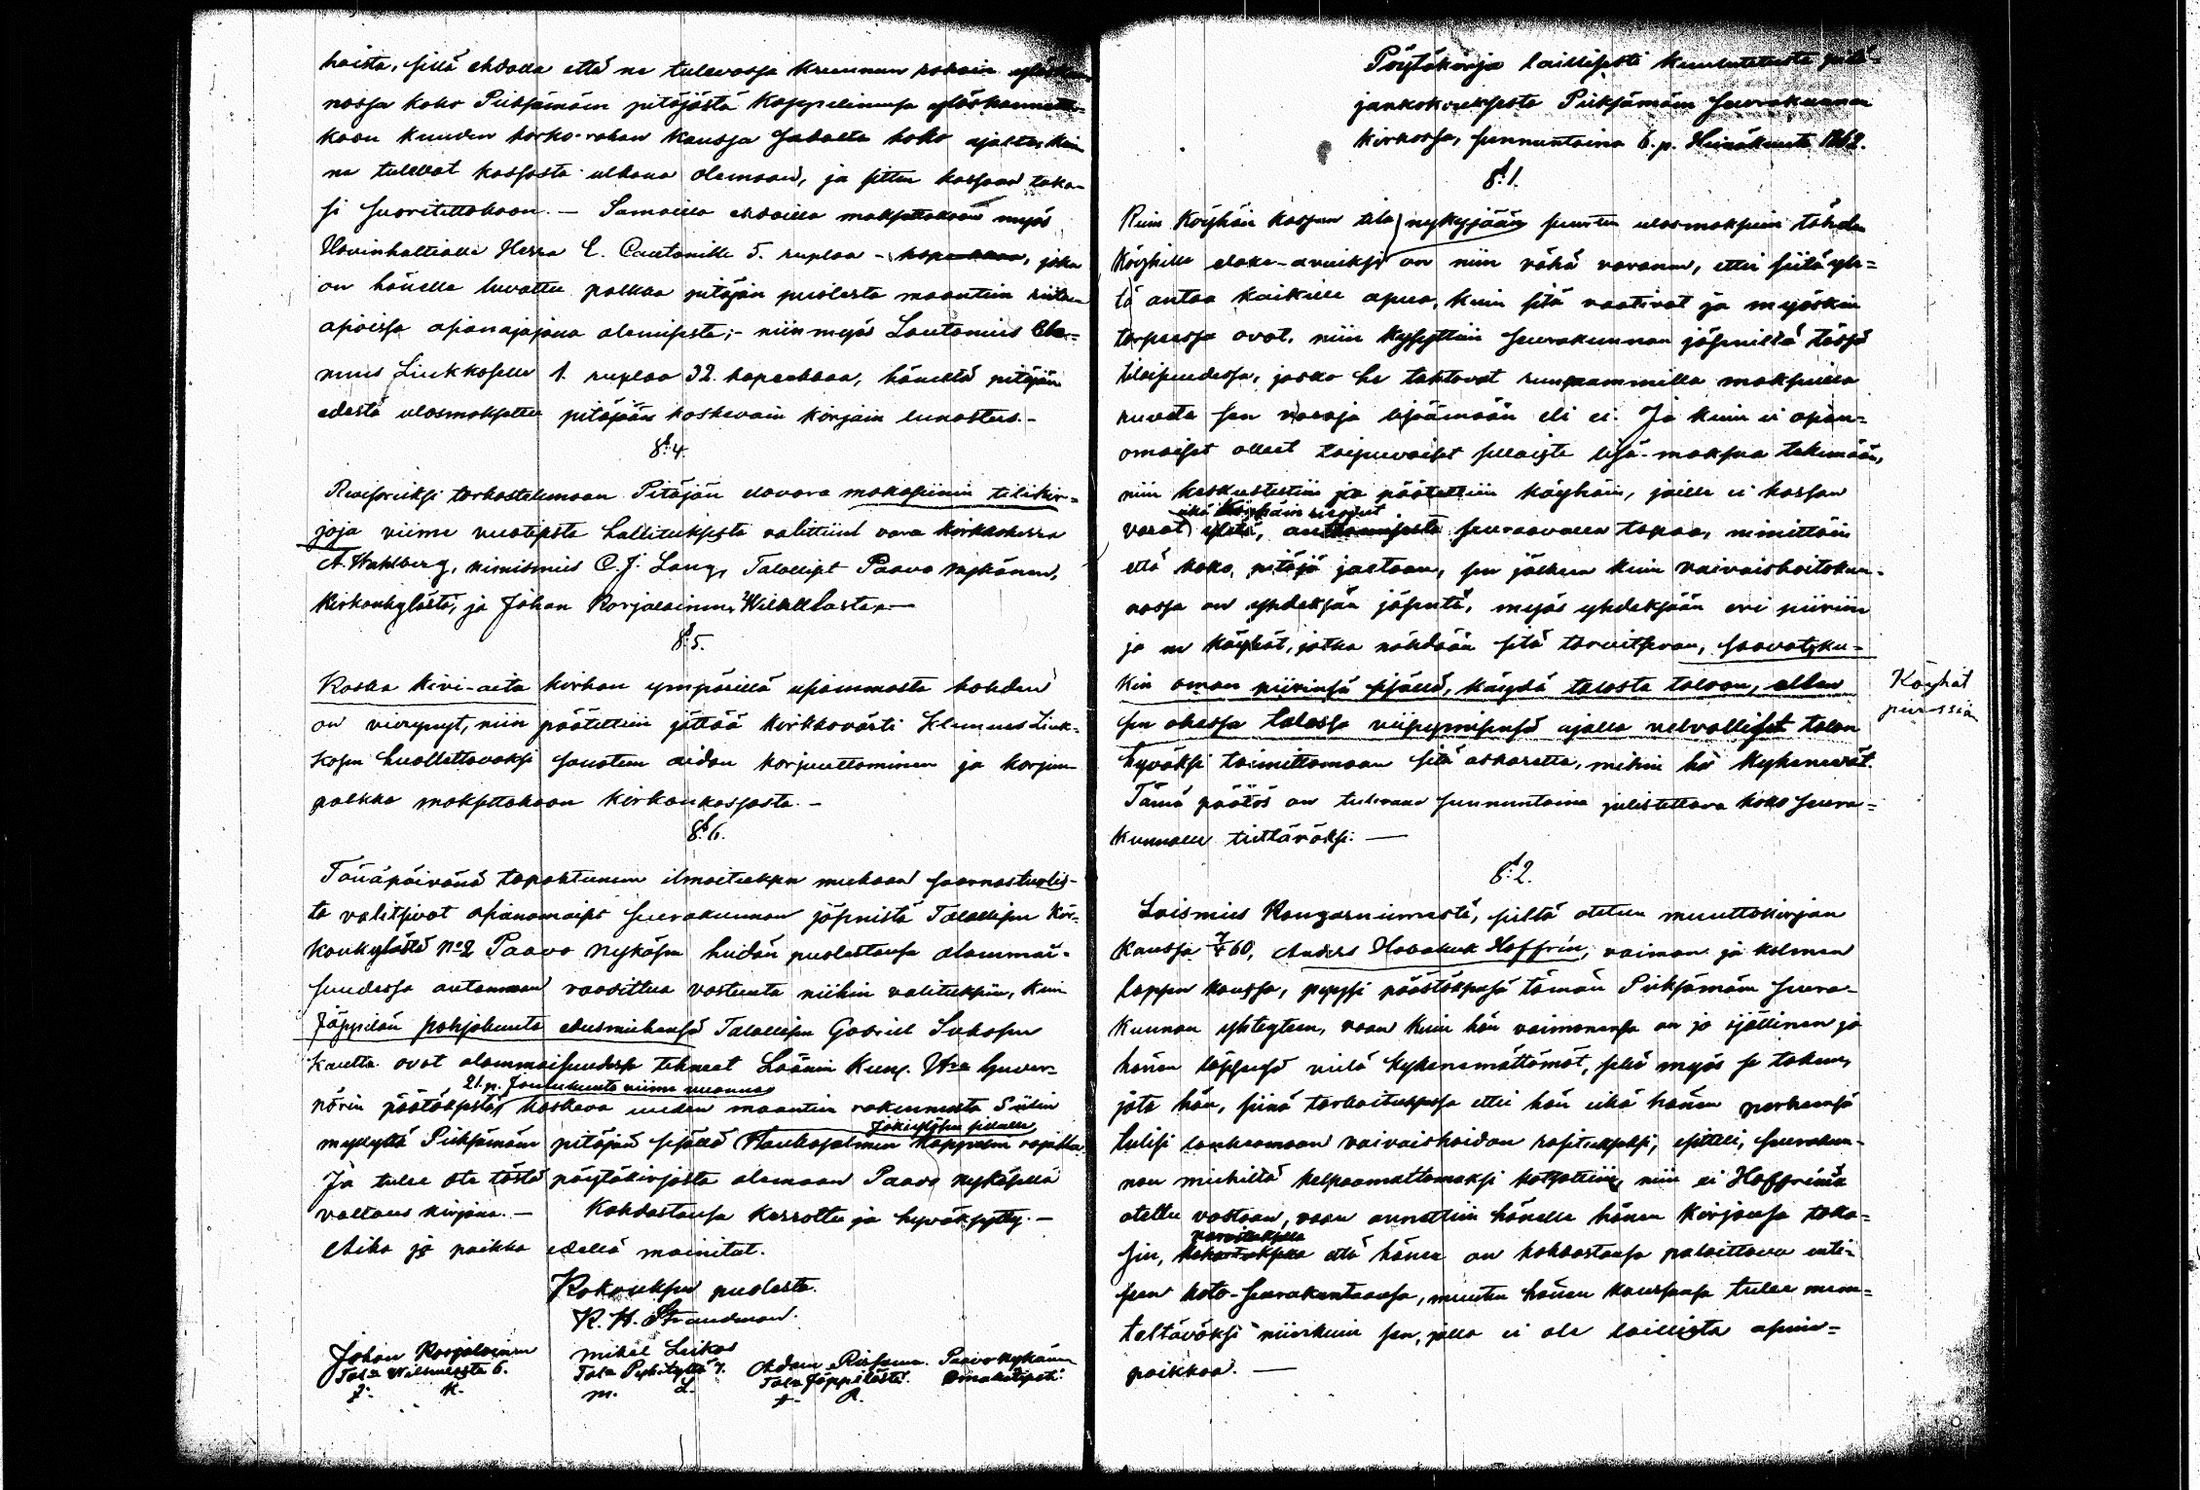 haista, sillä ehdolla että ne tulevassa Kruunun rahain
nossa koko Pieksämäen pitäjästä Kappelinensa ylöskannetta=
koon kuuden korko-rahan kanssa sadalta koko ajalta, kuin
ne tulevat kassasta ulkona olemaan, ja sitten kassaan taka-
si suoritettakoon. — Samoilla ehdoilla maksettakoon myös
Herra 5. ruplaa - kopeekkaa, joka
on hänelle luvattu palkka pitäjän puolesta maantien
asioissa asianajajana olemisesta; - niin myös Lautamies Cle=
mens Liukkoselle 1. ruplaa 32. kopeekkaa, häneltä pitäjän
edestä ulosmaksettu pitäjään koskevain kirjain lunastus. -
§. 4.
Revisoriksi tarkastelemaan Pitäjän elovara makasiinin tilikir=
joja viime vuotisesta hallituksesta valittiin vara kirkkoherra
A. Wahlberg, nimismies C. J. Lang, Talolliset Paavo Nykänen,
Kirkonkylästä, ja Johan Korjalainen,
§. 5.
Koska kivi-aita kirkon ympärillä usiammasta kohden
on vierynyt, niin päätettiin jättää kirkkovärti Klemens Liuk=
kosen huollettavaksi sanotun aidan korjuuttaminen ja korjuu
palkka maksettakoon kirkonkassasta. -
§. 6.
Tänäpäivänä tapahtuneen ilmoituksen mukaan saarnastuolis-
ta valitsivat asianomaiset seurakunnan jäsenistä Talollisen Kir-
konkylästä No 2 Paavo Nykäsen heidän puolestansa alammai-
suudessa antamaan vaadittua vastausta niihin valituksiin, kuin
Jäppilän pohjakunta edusmiehensä Talollisen Gabriel
kautta ovat alammaisuudessa tehneet Läänin Kuver-
21. p. Joulukuuta viime vuonna
nörin päätöksestä, koskeva uuden maantien rakennusta
Jokiylösen sillalle
Pieksämäen pitäjän sisällä Haukosalmen Kappelin rajalle.
Ja tulee ote tästä pöytäkirjasta olemaan Paavo Nykäsellä
valtaus kirjana. — Kohdastansa kerrottu ja hyväksytty. -
Aika ja paikka edellä mainitut.
Kokouksen puolesta.
K. H. Strandman.
Johan Korjalainen
6.
J. K.
Mikel Liukos
M. L.
Adam
Tal. Jäppilästä.
A. R.
Paavo Nykänen
omakätisesti.
Pöytäkirja laillisesti kuulutetusta pitä=
jänkokouksesta Pieksämäen seurakunnan
kirkossa, sunnuntaina 6. p. Heinäkuuta 1862.
§. 1.
Kuin Köyhäin kassan tila nykyjään suurten ulosmaksuin tähden
köyhille eloke-avuiksi on niin vähä varanen, ettei siitä yle=
tä antaa kaikille apua, kuin sitä vaativat ja myöskin
tarpeessa ovat, niin kysyttiin seurakunnan jäseniltä tässä
tilaisuudessa, josko he tahtovat runsaammilla maksuilla
ruveta sen varoja lisäämään eli ei. Ja kuin ei asian=
omaiset olleet taipuvaiset sellaista lisä-maksua tekemään,
niin keskusteltiin ja päätettiin köyhäin, joille ei kassan
eikä Köyhäin ruodut
varat yletä, auttamisesta seuraavalla tapaa, nimittäin
että koko pitäjä jaetaan, sen jälkeen kuin vaivaishoitokun-
nassa on yhdeksän jäsentä, myös yhdeksään eri piiriin
ja ne köyhät, jotka nähdään sitä tarvitsevan, saavat, ku=
kin oman piirinsä sisällä, käydä talosta taloon, ollen
sen ohessa talossa viipymisensä ajalla velvolliset talon
hyväksi toimittamaan sitä askaretta, mihin he kykenevät.
Tämä päätös on tulevana sunnuntaina julistettava koko seura=
kunnalle tiettäväksi. —
Köyhät
piirissiin
§. 2.
Loismies Kangasniemestä, sieltä otetun muuttokirjan
kanssa 60, Anders Habakuk Hoffrén, vaimon ja kolmen
lapsen kanssa, pyysi päästäksensä tämän Pieksämäen seura-
kunnan yhteyteen, vaan kuin hän vaimonensa on jo ijällinen ja
hänen lapsensa vielä kykenemättömät, sekä myös se takuu,
jota hän, siinä tarkoituksessa ettei hän eikä hänen perheensä
tulisi laukeamaan vaivaishoidon rasitukseksi, esitteli, seurakun-
nan miehiltä kelpaamattomaksi katsottiin, niin ei Hoffréniä
otettu vastaan, vaan annettiin hänelle hänen kirjansa taka=
varoituksella
sin, kehoituksella että hänen on kohdastansa palaittava enti=
seen koto-seurakuntaansa, muuten hänen kanssansa tulee mene=
teltäväksi niinkuin sen, jolla ei ole laillista asuin=
paikkaa. —